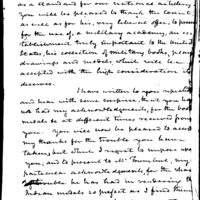 as a standard for our national artillery.
You will be pleased to thank the Count
as well as for his very liberal offer, to present
for the use of a military academy, an es-
tablishment truly important to the United
States, his collection of military books, plans
drawings and models, which will be
accepted with the high consideration it
deserves.
I have written to you repeatedly
and hear with some surprise, that you have
not had my acknowledgments, for the
medals &c at different times received from
you. You will now be pleased to accept
my thanks for the trouble you have
taken, and which I regret to impose upon
you, and to present to Mr. Trumbull, my
particular acknowledgments, for the share
trouble he has had in rendering the
Indian medals so perfect as I find them